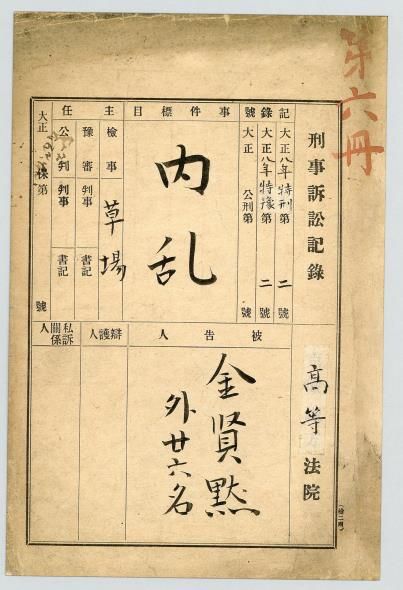 第六冊
刑事訴訟記錄
高等法院
記 大正八年特刑第二號
錄 大正八年特豫第二號
號 大正 公刑第 號
事件標目
内乱
主任
檢事 草場
豫審判事 書記
公判判事 書記
大正 保第 號
被告人
金賢黙
外廿六名
辯護人
私訴關係人